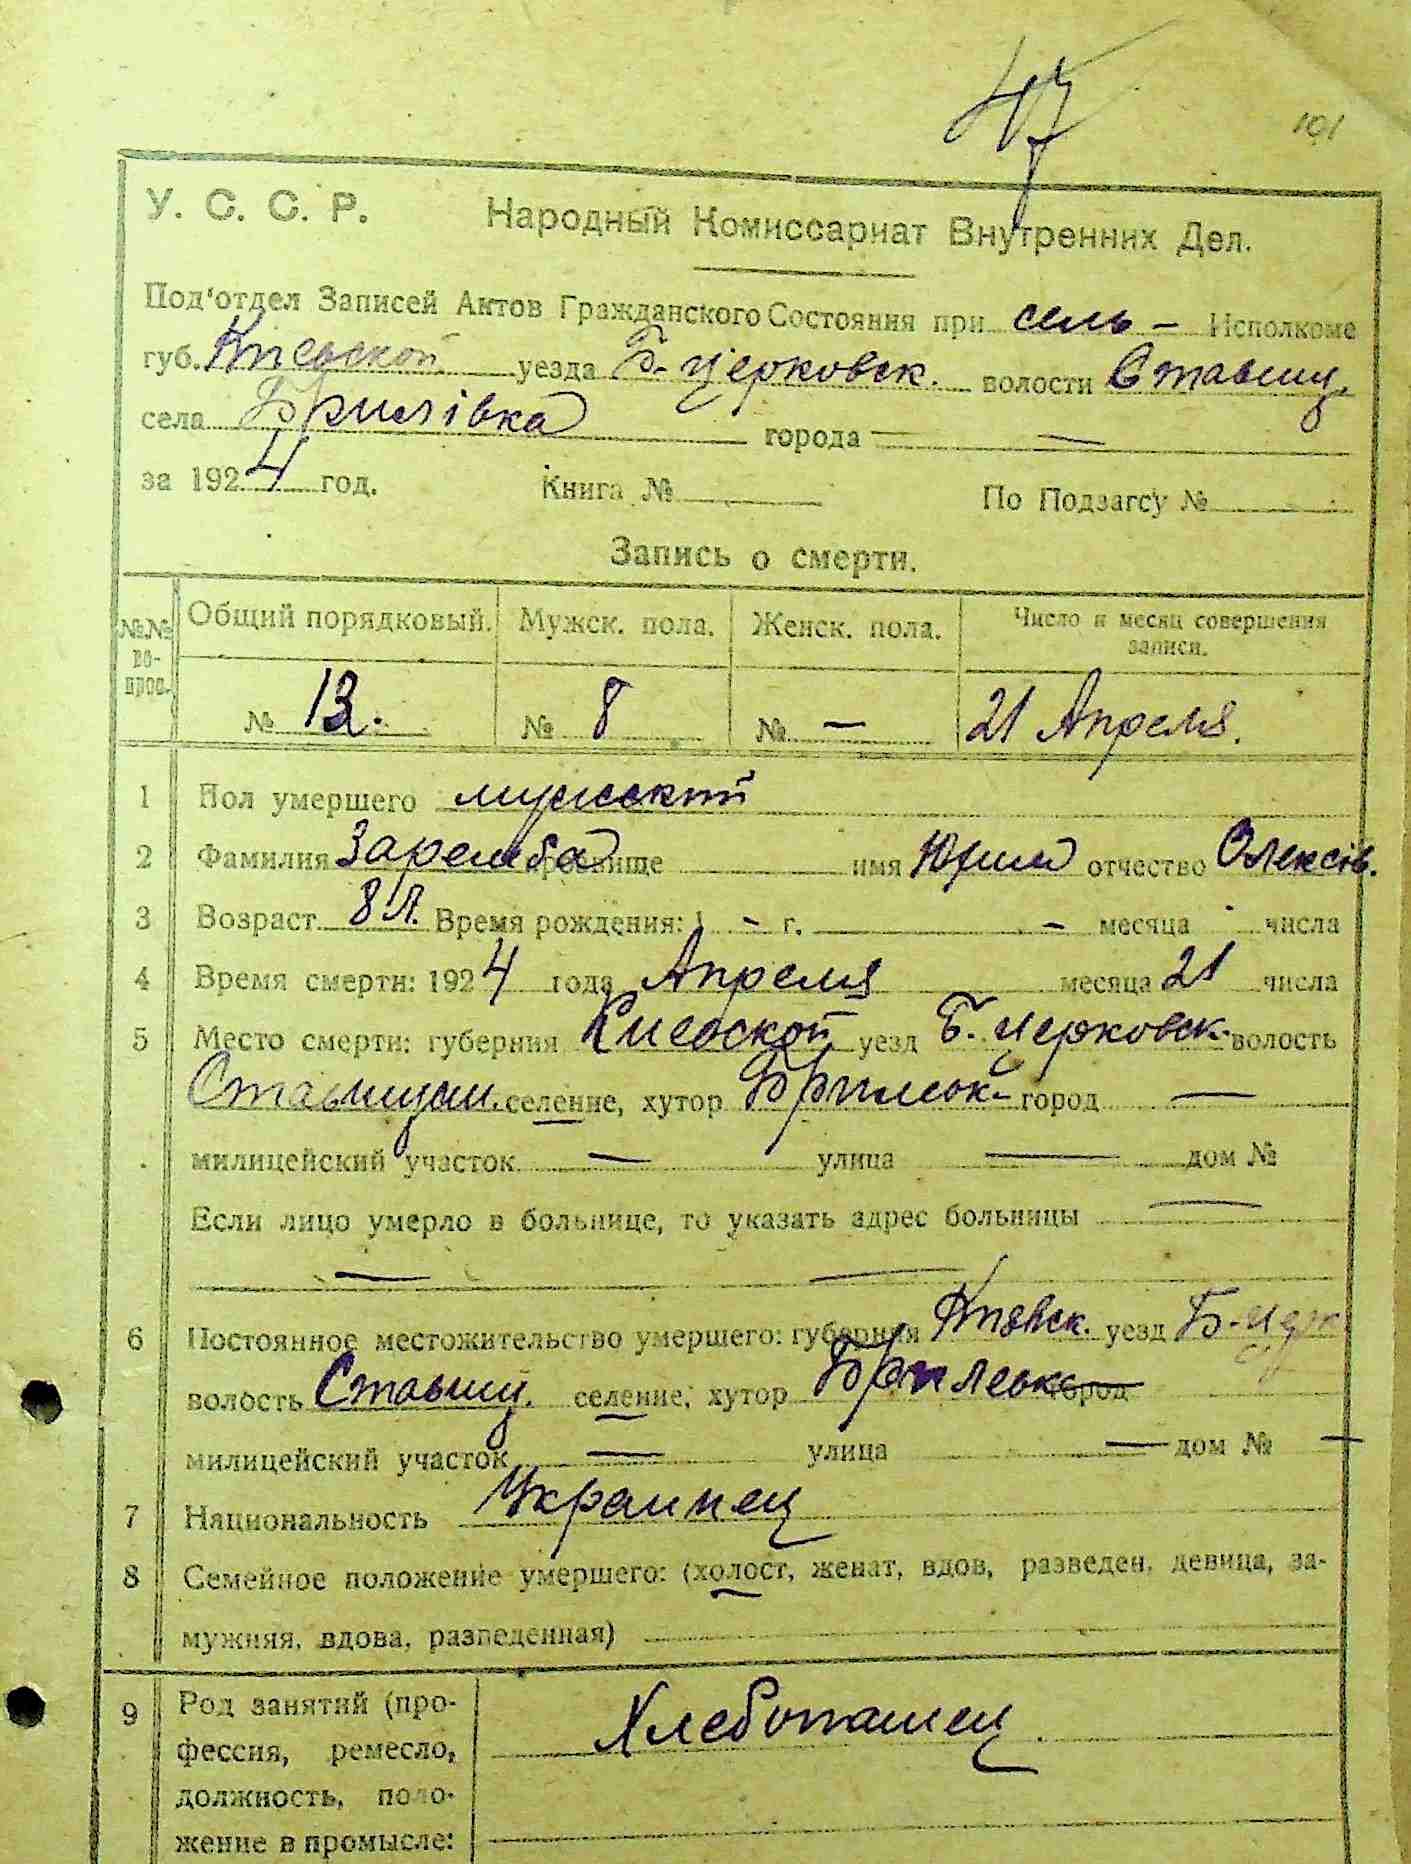 47
101
У. С. С. Р. Народный Комиссариат Внутренних Дел.
Под'отдел Записей Актов Гражданского Состояния при сель- Исполкоме
губ. Киевской уезда Б-Церковск. волости Ставищ.
села Брилівка города —
за 1924 год. Книга № По Подзагсу №
Запись о смерти.
№№ во-прос. Общий порядковый. Мужск. пола. Женск. пола. Число и месяц совершения записи.
№ 13. № 8 № — 21 Апреля.
1 Пол умершего мужской
2 Фамилия Заремба прозвище имя отчество Олексів.
3 Возраст 8 л. Время рождения: 1 - г. - месяца числа
4 Время смерти: 1924 года Апреля месяца 21 числа
5 Место смерти: губерния Киевской уезд Б. Церковск. волость
селение, хутор город —
милицейский участок — улица — дом №
Если лицо умерло в больнице, то указать адрес больницы —
— —
6 Постоянное местожительство умершего: губерния уезд Б-Церк
волость Ставищ. селение, хутор город
милицейский участок — улица — дом № —
7 Национальность Украинец
8 Семейное положение умершего: (холост, женат, вдов, разведен, девица, за-
мужняя, вдова, разведенная)
9 Род занятий (про- Хлебопашец
фессия, ремесло,
должность, поло-
жение в промысле: